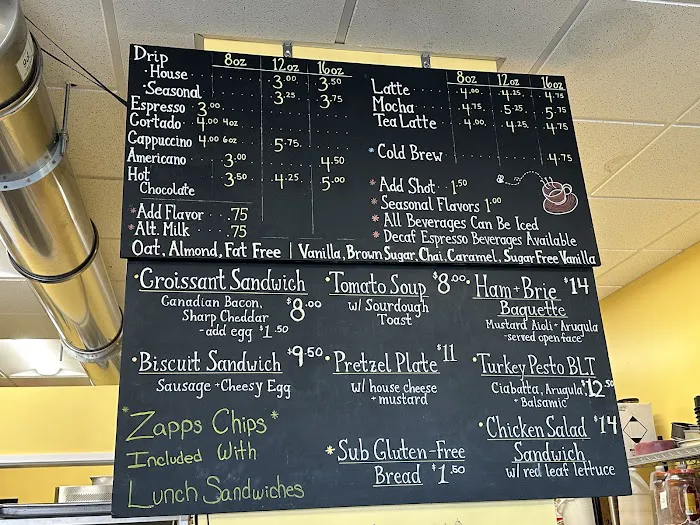 8oz 12oz 16oz
Drip
·House 3.00 3.50
·Seasonal 3.25 3.75
Espresso 3.00
Cortado 4.00 4oz
Cappuccino 4.00 6oz 5.75
Americano 3.00 4.50
Hot Chocolate 3.50 4.25 5.00
*Add Flavor .75
*Alt. Milk .75
8oz 12oz 16oz
Latte 4.00 4.25 4.75
Mocha 4.75 5.25 5.75
Tea Latte 4.00 4.25 4.75
*Cold Brew 4.75
*Add Shot 1.50
*Seasonal Flavors 1.00
*All Beverages Can Be Iced
*Decaf Espresso Beverages Available
Oat, Almond, Fat Free | Vanilla, Brown Sugar, Chai, Caramel, Sugar Free Vanilla
·Croissant Sandwich $8.00
Canadian Bacon,
Sharp Cheddar
-add egg $1.50
·Biscuit Sandwich $9.50
Sausage + Cheesy Egg
*Zapps Chips*
Included With
Lunch Sandwiches
·Tomato Soup $8.00
w/ Sourdough
Toast
·Pretzel Plate $11
w/ house cheese
+ mustard
*Sub Gluten-Free
Bread $1.50
·Ham + Brie $14
Baguette
Mustard Aioli + Arugula
-served open face
·Turkey Pesto BLT
Ciabatta, Arugula, $12.50
+ Balsamic
·Chicken Salad $14
Sandwich
w/ red leaf lettuce